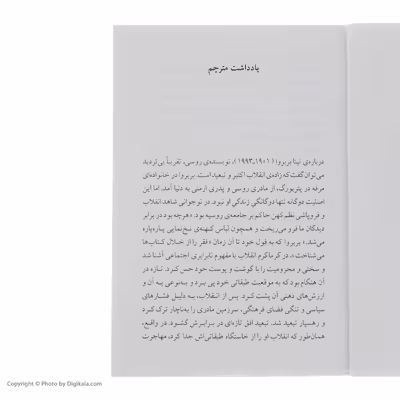 یادداشت مترجم
درباره‌ی نینا بربروا (۱۹۰۱ـ۱۹۹۳)، نویسنده‌ی روسی، تقریباً بی‌تردید
می‌توان گفت که زاده‌ی انقلاب اکتبر و تبعید است. بربروا در خانواده‌ای
مرفه در پتربورگ، از مادری روسی و پدری ارمنی به دنیا آمد. اما این
اصلیت دوگانه تنها دوگانگی زندگی او نبود. در نوجوانی شاهد انقلاب
و فروپاشی نظم کهن حاکم بر جامعه‌ی روسیه بود. «هرچه بود در برابر
دیدگان ما فرو می‌ریخت و همچون لباس کهنه‌ی نخ‌نمایی پاره‌پاره
می‌شد.» بربروا که به قول خود تا آن زمان «فقر را از خلال کتاب‌ها
می‌شناخت»، در گرماگرم انقلاب با مفهوم نابرابری اجتماعی آشنا شد
و سختی و محرومیت را با گوشت و پوست خود حس کرد. تازه در
آن هنگام بود که به موقعیت طبقاتی خود پی برد و به‌نوعی به آن و
ارزش‌های ذهنی آن پشت کرد. پس از انقلاب، به دلیل فشارهای
سیاسی و تنگی فضای فرهنگی، سرزمین مادری را به‌ناچار ترک کرد
و رهسپار تبعید شد. تبعید افق تازه‌ای در برابرش گشود. در واقع،
همان‌طور که انقلاب او را از خاستگاه طبقاتی‌اش جدا کرد، مهاجرت
Copyright © Photo by Digikala.com